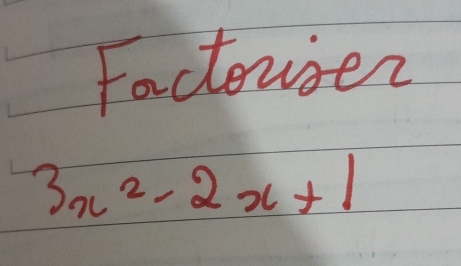 Factoriser
3x² - 2x + 1